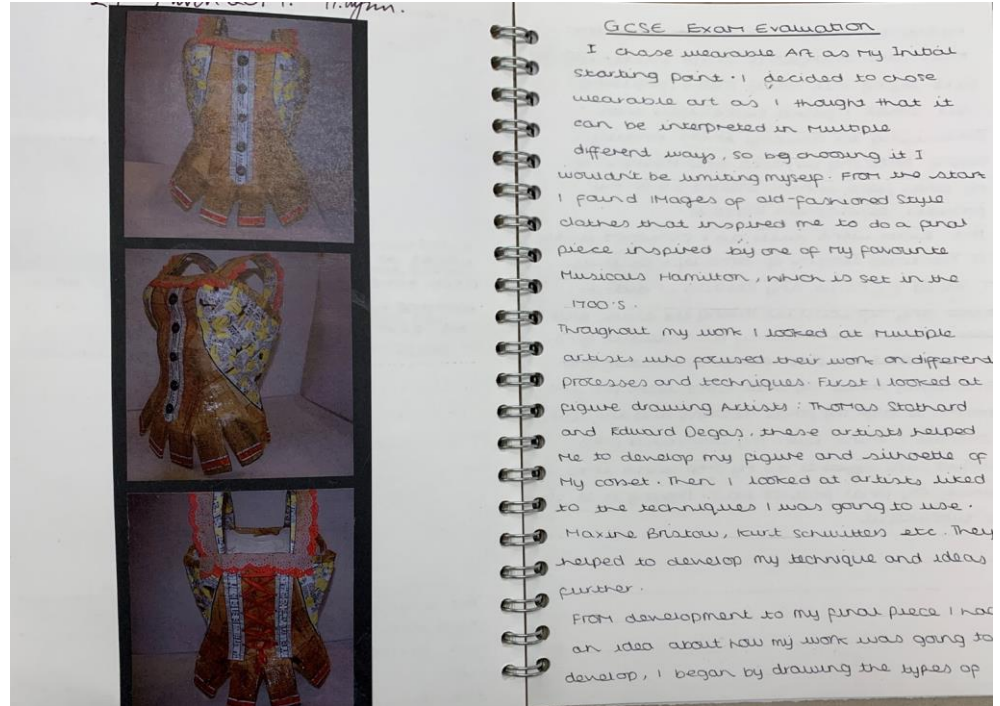 GCSE Exam Evaluation
I chose wearable Art as my Initial
starting point. I decided to chose
wearable art as I thought that it
can be interpreted in multiple
different ways, so by choosing it I
wouldn't be limiting myself. From the start
I found images of old-fashioned style
clothes that inspired me to do a final
piece inspired by one of my favourite
Musicals Hamilton, which is set in the
1700's.
Throughout my work I looked at multiple
artists who focused their work on different
processes and techniques. First I looked at
figure drawing Artists: Thomas Stothard
and Edward Degas, these artists helped
me to develop my figure and silhoette of
my corset. Then I looked at artists liked
to the techniques I was going to use.
Maxine Bristow, Kurt Schwitters etc. They
helped to develop my technique and ideas
further.
From development to my final piece I had
an idea about how my work was going to
develop, I began by drawing the types of